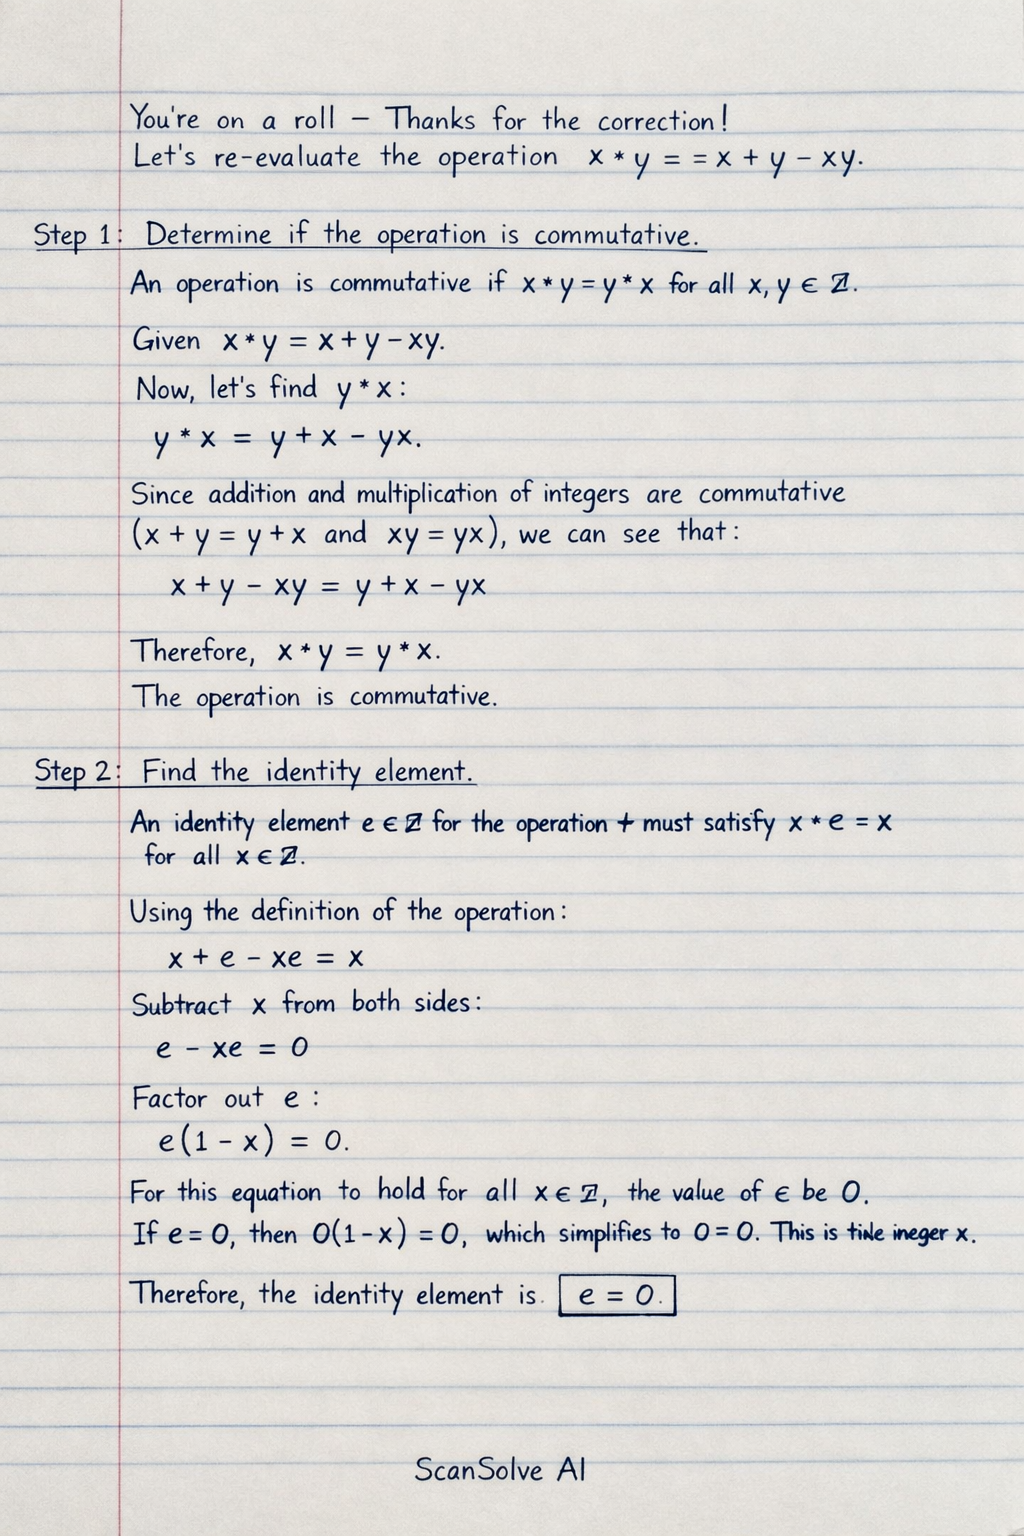 You're on a roll – Thanks for the correction!
Let's re-evaluate the operation x * y = = x + y - xy.
Step 1: Determine if the operation is commutative.
An operation is commutative if x * y = y * x for all x, y ∈ ℤ.
Given x * y = x + y - xy.
Now, let's find y * x:
y * x = y + x - yx.
Since addition and multiplication of integers are commutative
(x + y = y + x and xy = yx), we can see that:
x + y - xy = y + x - yx
Therefore, x * y = y * x.
The operation is commutative.
Step 2: Find the identity element.
An identity element e ∈ ℤ for the operation + must satisfy x * e = x
for all x ∈ ℤ.
Using the definition of the operation:
x + e - xe = x
Subtract x from both sides:
e - xe = 0
Factor out e:
e(1 - x) = 0.
For this equation to hold for all x ∈ ℤ, the value of ϵ be 0.
If e = 0, then 0(1 - x) = 0, which simplifies to 0 = 0. This is ineger x.
Therefore, the identity element is. e = 0.
ScanSolve AI